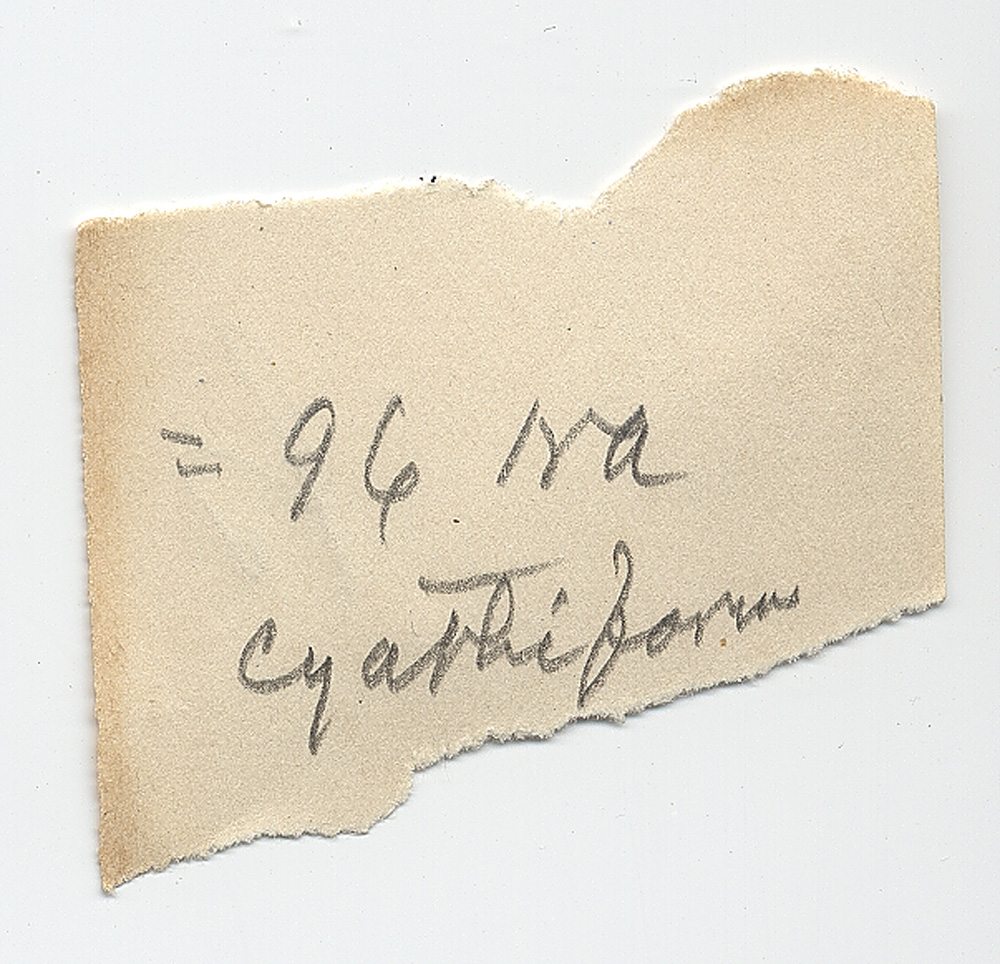 = 96 va
cyathiformis